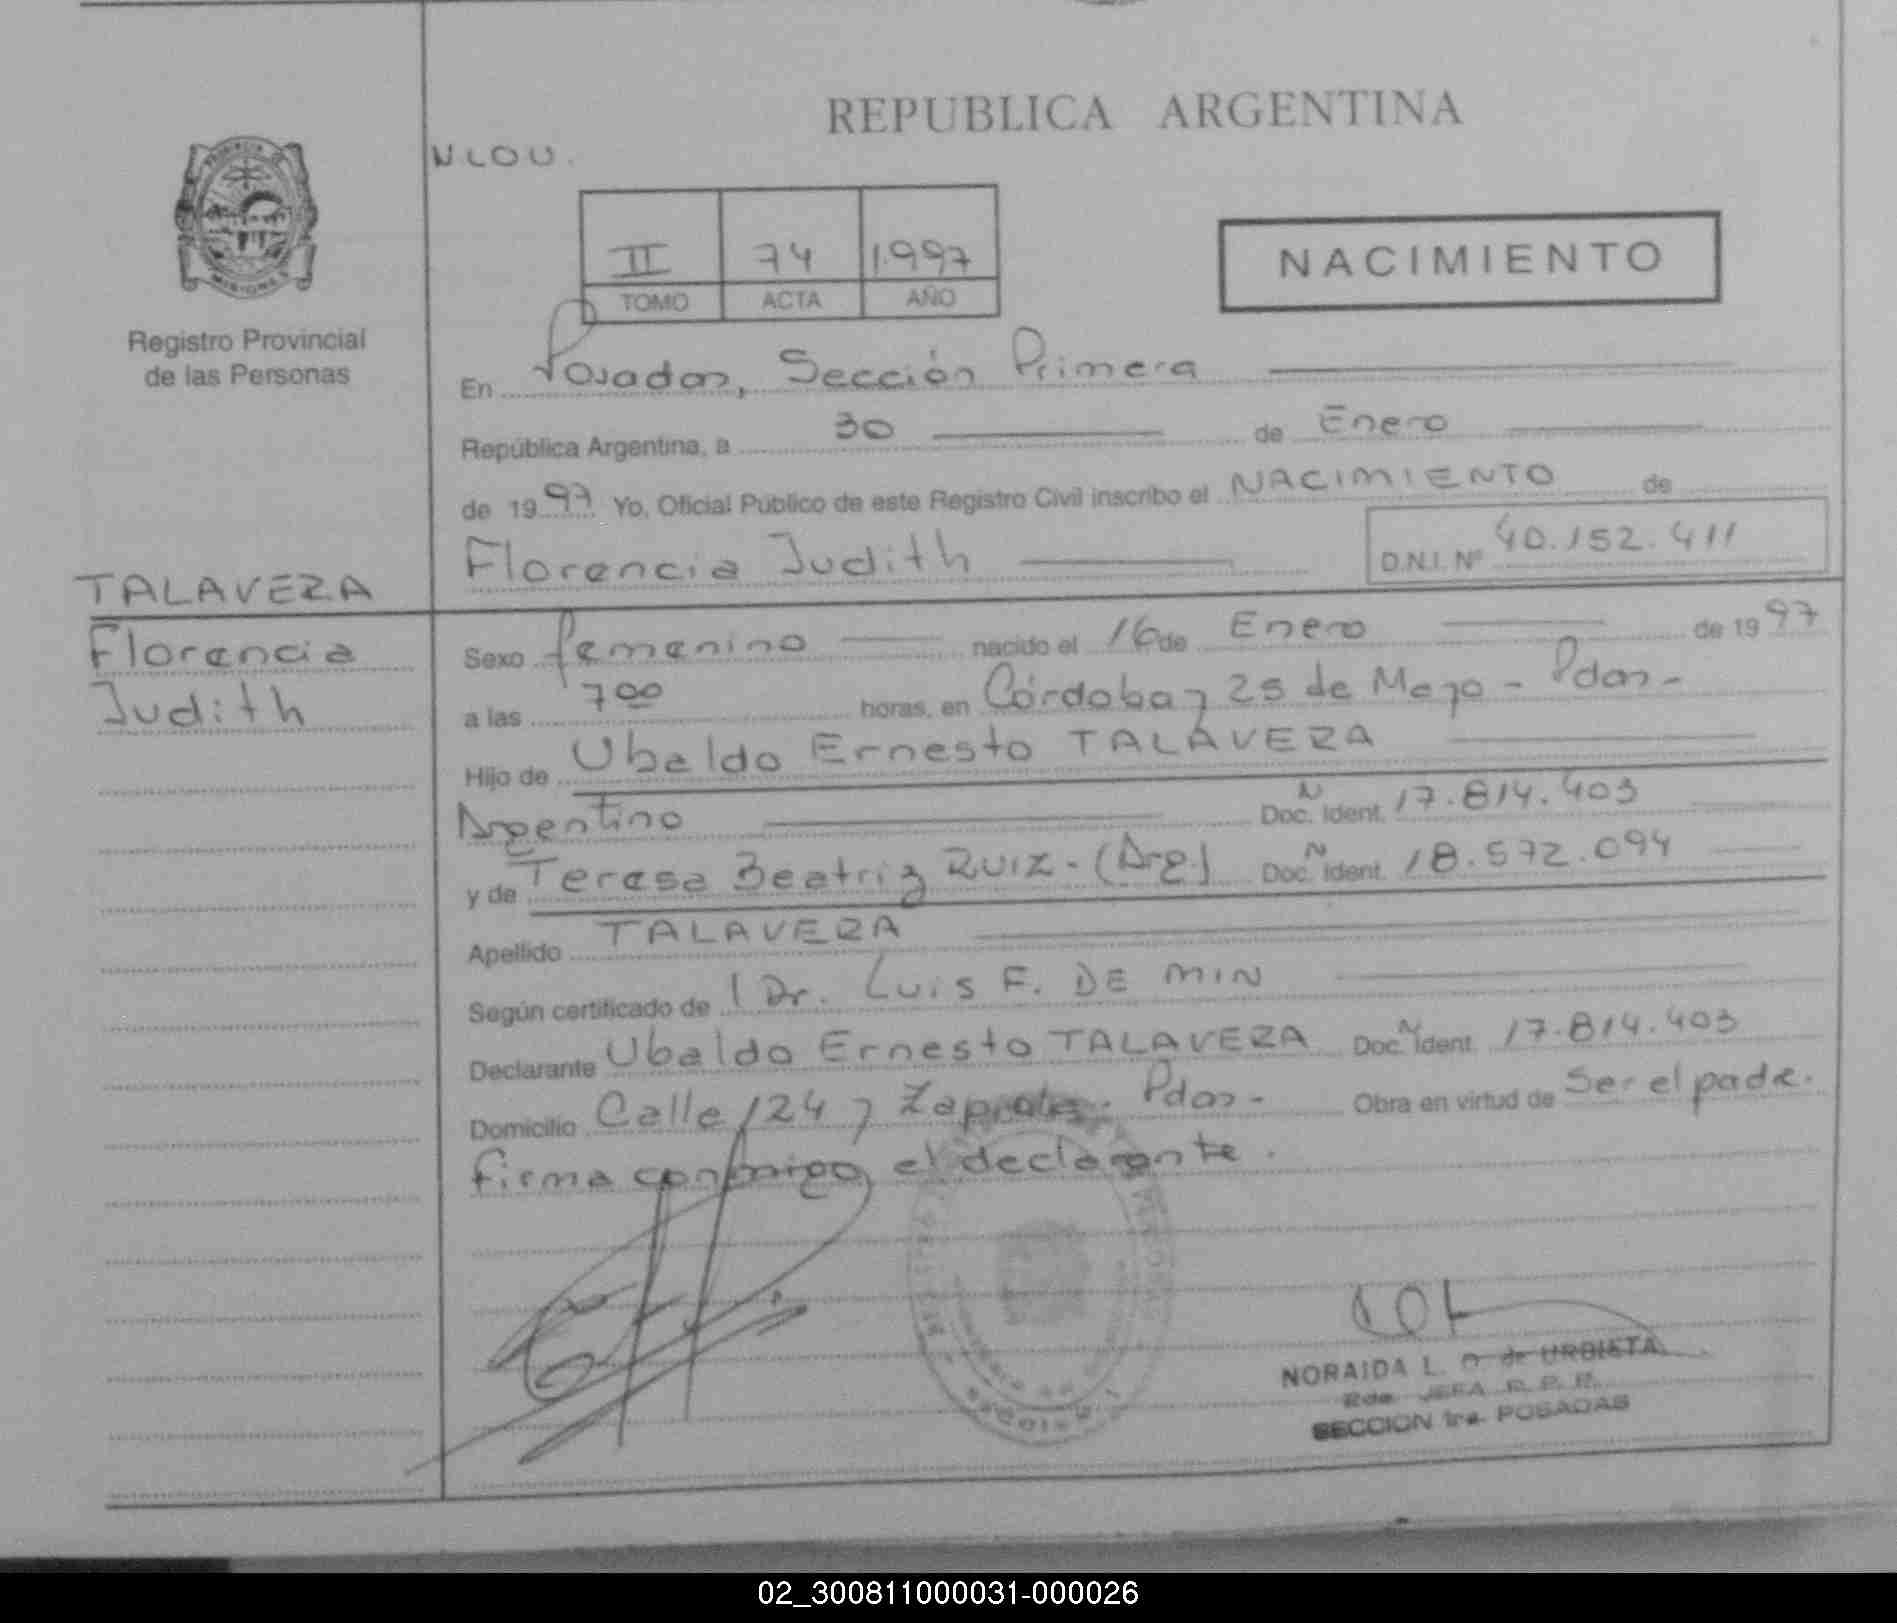 REPUBLICA ARGENTINA
PROVINCIA DE
MISIONES
Registro Provincial
de las Personas
II 74 1.997
TOMO ACTA AÑO
NACIMIENTO
En Posadas, Sección Primera
República Argentina, a 30 de Enero
de 1997 Yo, Oficial Público de este Registro Civil inscribo el NACIMIENTO de
Florencia Judith D.N.I. Nº 40.152.411
TALAVERA
Florencia
Judith
Sexo femenino nacido el 16 de Enero de 1997
a las 7 00 horas, en Córdoba y 25 de Mayo - Pdas -
Hijo de Ubaldo Ernesto TALAVERA
Argentino Doc. N Ident. 17.814.403
y de Teresa Beatriz RUIZ - (Arg) Doc. N Ident. 18.572.094
Apellido TALAVERA
Según certificado de l Dr. Luis F. DE MIN
Declarante Ubaldo Ernesto TALAVERA Doc. N Ident. 17.814.403
Domicilio Calle 124 y Pdas - Obra en virtud de Ser el padre.
firma conmigo el declarante.
NORAIDA L. de URBIETA
JEFA R. P. P.
SECCION 1ra. POSADAS
02_300811000031-000026